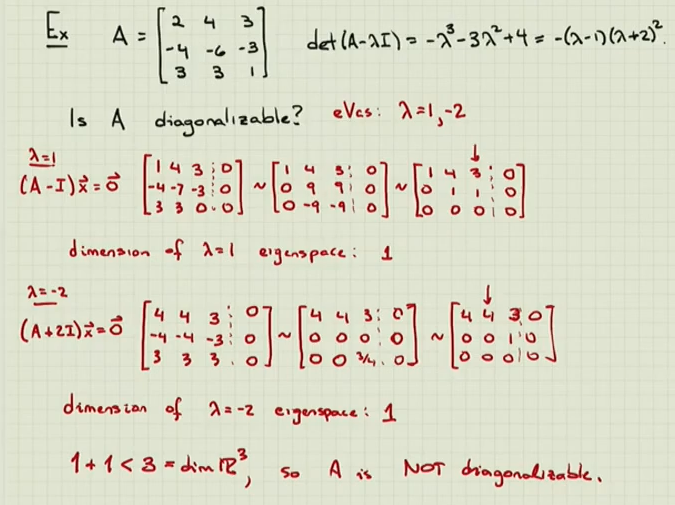 Ex A = [ 2 4 3 det(A-λI) = -λ³-3λ²+4 = -(λ-1)(λ+2)².
-4 -6 -3
3 3 1 ]
Is A diagonalizable? eVas: λ=1,-2
λ=1 ↓
(A-I)x⃗=0⃗ [ 1 4 3 ¦ 0 ] ~ [ 1 4 3 ¦ 0 ] ~ [ 1 4 3 ¦ 0 ]
[ -4 -7 -3 ¦ 0 ] [ 0 9 9 ¦ 0 ] [ 0 1 1 ¦ 0 ]
[ 3 3 0 ¦ 0 ] [ 0 -9 -9 ¦ 0 ] [ 0 0 0 ¦ 0 ]
dimension of λ=1 eigenspace: 1
λ=-2 ↓
(A+2I)x⃗=0⃗ [ 4 4 3 ¦ 0 ] ~ [ 4 4 3 ¦ 0 ] ~ [ 4 4 3 ¦ 0 ]
[ -4 -4 -3 ¦ 0 ] [ 0 0 0 ¦ 0 ] [ 0 0 1 ¦ 0 ]
[ 3 3 3 ¦ 0 ] [ 0 0 3/4 ¦ 0 ] [ 0 0 0 ¦ 0 ]
dimension of λ=-2 eigenspace: 1
1+1 < 3 = dim ℝ³, so A is NOT diagonalizable.